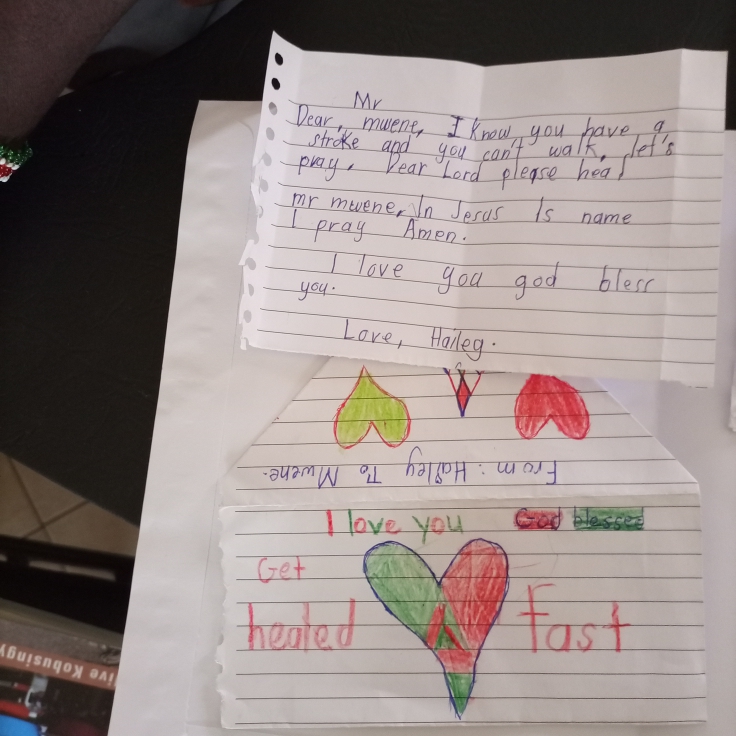 Mr
Dear, mwene, I know you have a
stroke and you can't walk, let's
pray. Dear Lord please heal
mr mwene, In Jesus Is name
I pray Amen.
I love you god bless
you.
Love, Haileg.
From: Hailey To Mwene.
I love you God blessed
Get
healed fast
ive Kobusingy